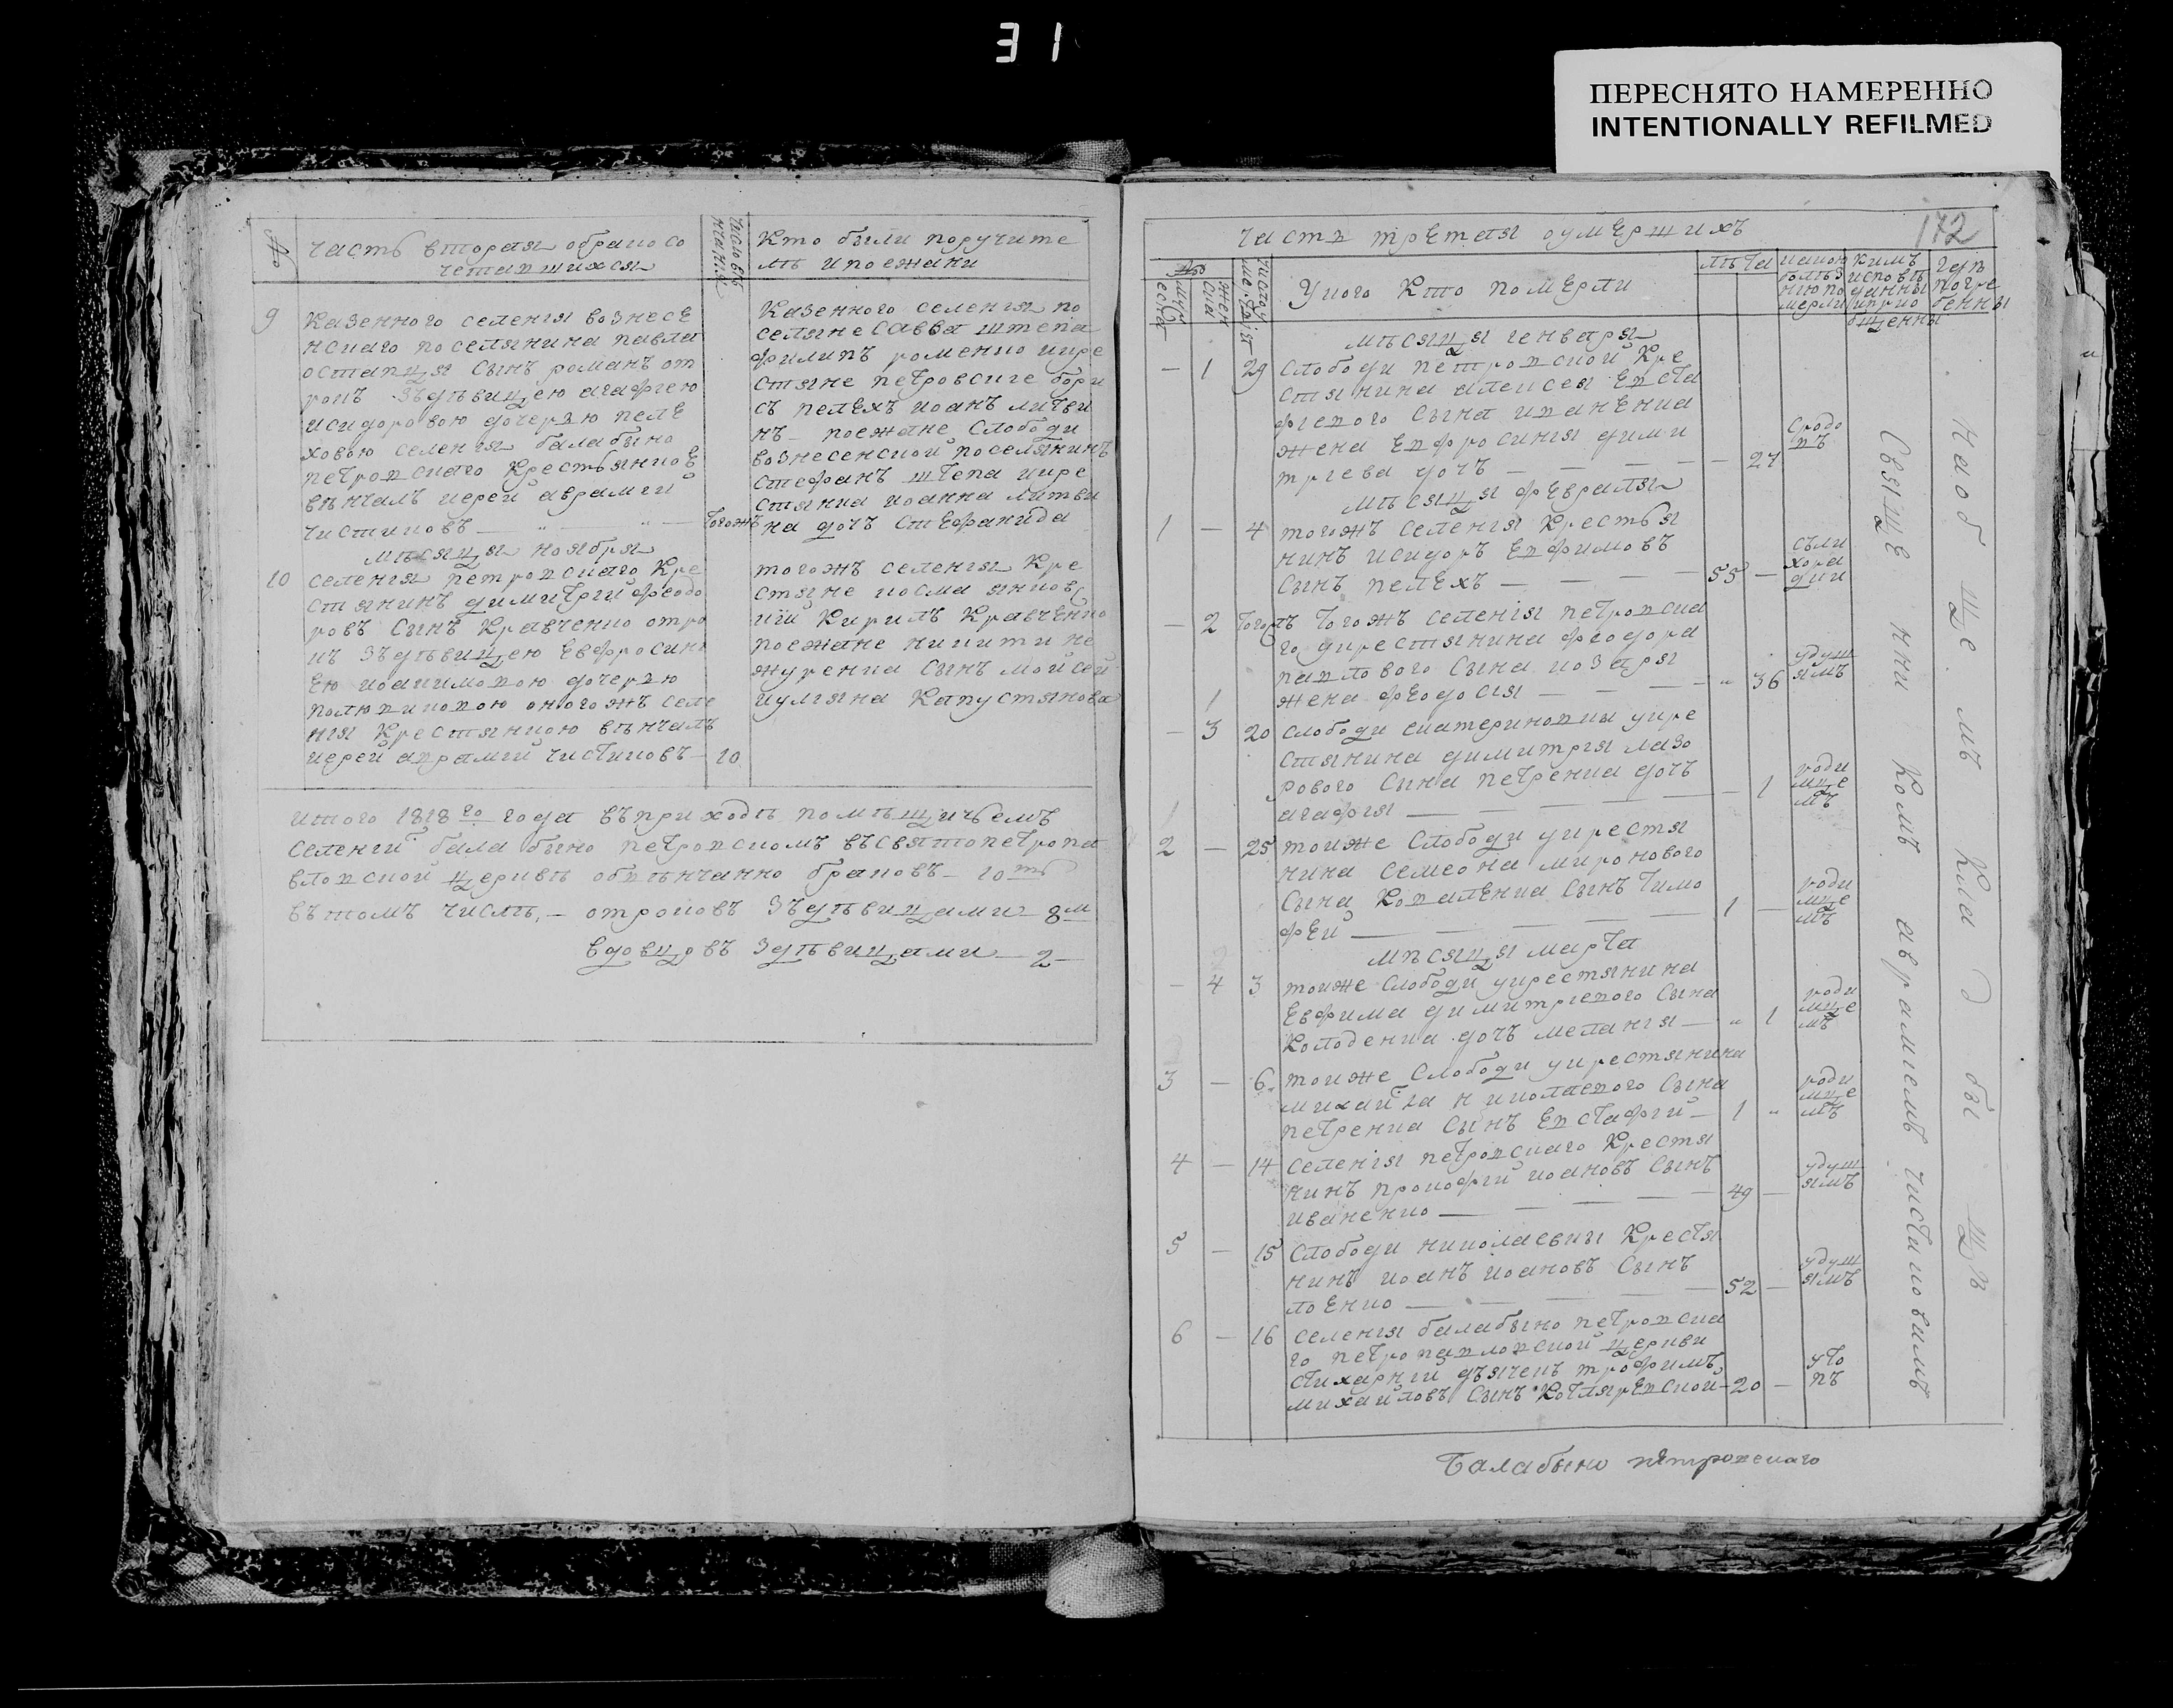 31
ПЕРЕСНЯТО НАМЕРЕННО
INTENTIONALLY REFILMED
№
часть вторая обрако со
четавшихся
Число вѣ
нчания
Кто были поручите
лѣ и поежани
9
Казенного селения вознесе
нскаго поселянина павла
остапця Сынъ романъ от
рокъ Зъдѣвицею агафгею
исидоровою дочерзю пеле
ховою селения балабыно
петровскаго Крестьянкоѣ
вѣнчалъ иерей аврамий
чистиковъ
тогожъ
Казенного селения по
селяне Савва штепа
филипъ роменко икре
стяне петровские бори
съ пелехъ иоанъ литви
нъ поежане Слободи
вознесенской поселянинъ
стефанъ штепа икре
стянка иоанна литви
на дочъ Стефанида
мѣсяця ноября
10
селения петровскаго Кре
стянинъ димитрий феодо
ровъ Сынъ Кравченко отро
къ Зъдѣвицею Евфросини
ею иоакимовою дочерзю
оногожъ селе
ния Крестянкою вѣнчалъ
иерей аврамий чистиковъ
10
тогожъ селения Кре
стяне
Кирилъ Кравченко
поежане никити не
журенка Сынъ мойсей
иулияна Капустянова
итого 1818го года въприходѣ помѣщичьемъ
селений балабыно петровскомъ въсвятопетропа
вловской церквѣ обвѣнчанно браковъ 10тъ
въ томъ числѣ, отроковъ Зъдѣвицами 8м
вдовцовъ Здѣвицами 2
172
часть третая оумершихъ
№
мужеска
женска
число умертвия
Укого Кто померли
лѣта
какою болѣзнию померли
Кимъ исповѣданны иприобщенны
гдѣ погребенны
мѣсяця генваря
— 1 29
Слободи петровской Кре
стянина алексея Евста
фгевого Сына иваненка
жена Евфросиния дими
триева дочъ — 27
Сродовъ
мѣсяця февраля
1 — 4
тогожъ селения Крестья
нинъ исидоръ Ефимовъ
Сынъ пелехъ 55 —
съли
хора
дки
— 2
тогожъ селения петровска
го укрестянина феодора
павлового Сына козаря
жена феодосия 36
удуш
ямъ
— 3 20
слободи екатериновки укре
стянина димитрия лазо
рового Сына петренка дочъ
агафия — 1
роди
мце
мъ
2 — 25
тоиже Слободи укрестя
нина Семеона миронового
Сына Коваленка Сынъ тимо
фей 1 —
роди
мце
мъ
мѣсяця марта
— 4 3
тоиже Слободи укрестянина
Евфима димитриевого Сына
Колоденка дочъ мелания 1
роди
мце
мъ
3 — 6
тоиже Слободи укрестянина
михайла николаевого Сына
петренка Сынъ Евстафий 1
роди
мце
мъ
4 — 14
селения петровскаго Крестя
нинъ прокофий иоановъ Сынъ
иваненко 49 —
удуш
ямъ
5 — 15
Слободи николаевки Крестя
нинъ иоанъ иоановъ Сынъ
52 —
удуш
ямъ
6 — 16
селения балабыно петровска
го петропавловской церкви
стихарний дьячекъ трофимъ
михайловъ Сынъ Котляревской 20 —
уто
пъ
Священникомъ аврамиемъ чистиковимъ
На об Кла бы
Балабыно петровскаго